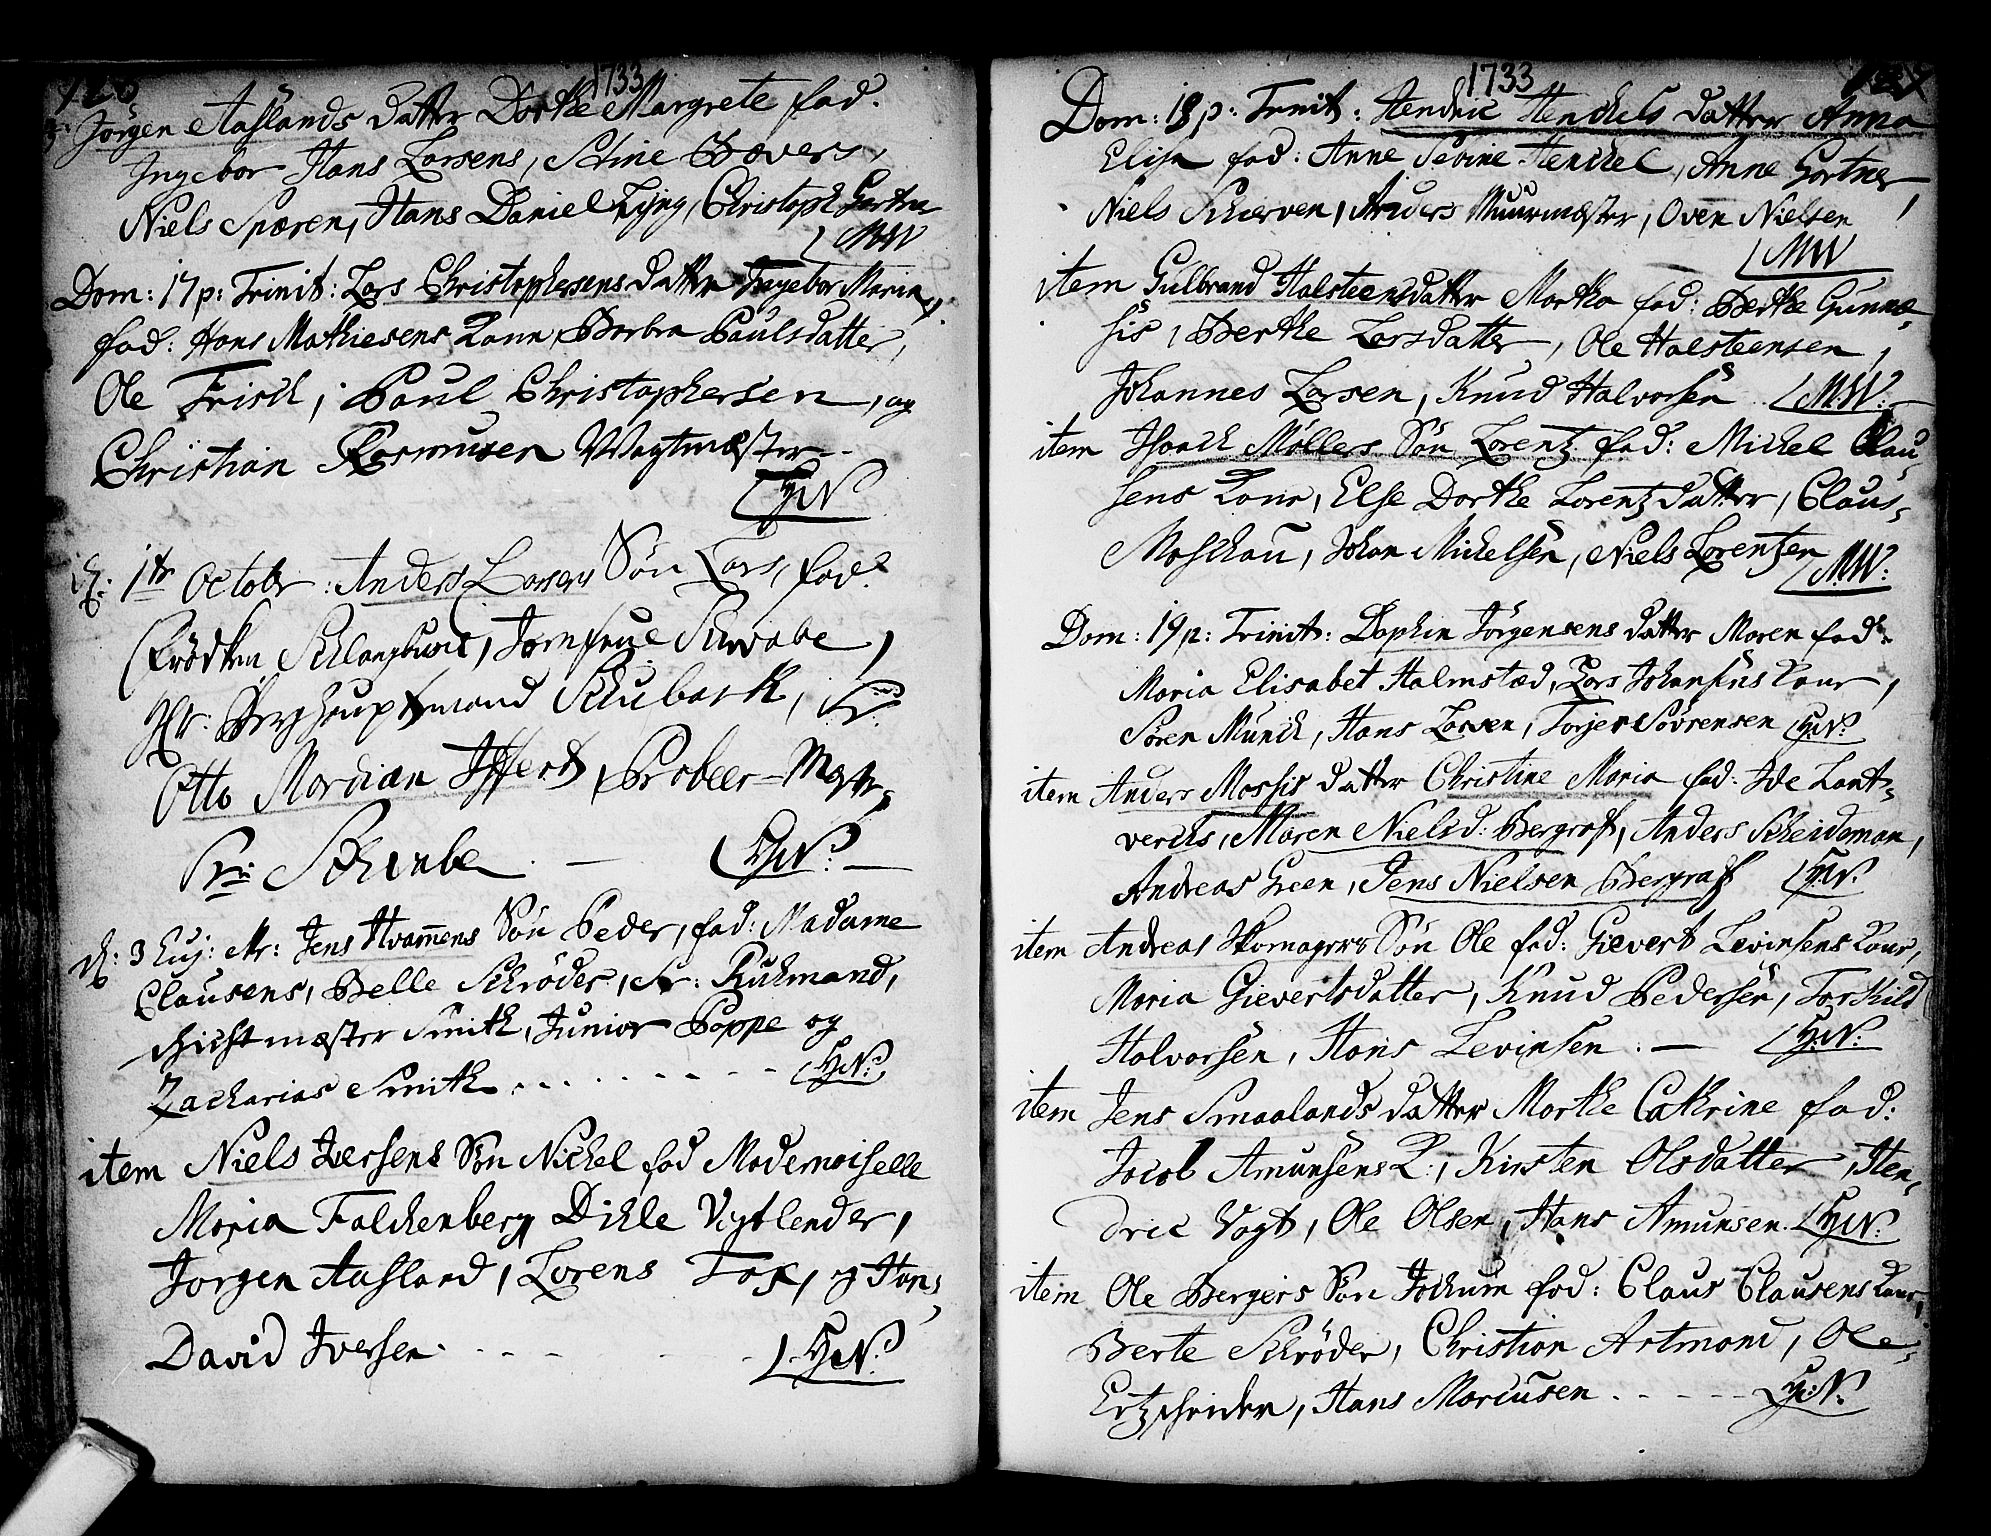 1733
Jörgen Aaslands datter Dorthe Margrete fad.
Ingebor Hans Larsens, Stine Bævers,
Niels Spæren, Hans Daniel Lÿng, Christoph Gartner
MW
Dom: 17 p: Trinit: Lars Christophersens datter Ingebor Maria,
fad: Hans Mathiesens Kone, Barbra Paulsdatter,
Ole Frisch, Paul Christophersen, og
Christian Rasmusen Wagtmæster
HN
d: 1te October: Anders Larsens Sön Lars, fad:
Frödken Schlangbusch, Jomfrue Schwabe,
Hr. Berghauptmand Schubart, Hr.
Otto Mardian Iffert, Probeer-Mester
Sr: Schwabe. — HN: —
d: 3 Huj: Mr: Jens Hvamens Sön Peder, fad: Madame
Clausens, Belle Schröder, Sr: Ruhmand,
Schichtmæster Smith, Junior Poppe og
Zacharias Smith. HN:
item Niels Iversens Sön Nickel fad Mademoiselle
Maria Falchenberg, Dichle Vogtlender,
Jorgen Aasland, Lorens Fox, og Hans
David Iversen. HN:
1733 127
Dom: 18 p: Trinit: Hendric Henchels datter Anna
Elisa fad: Anne Sevine Henchel, Anne Gartner,
Niels Schierven, Anders Muurmæster, Oven Nielsen
MW
item Gulbrand Halsteensdatter Martha fad: Berthe Gunne-
sis, Berthe Larsdatter, Ole Halsteensen,
Johannes Larsen, Knud Halvorsen MW:
item Isaach Møllers Sön Lorentz fad: Michel Clau-
sens Kone, Else Dorthe Lorentzdatter, Claus
Maschau, Johan Michelsen, Niels Lorentzen
MW:
Dom: 19 p: Trinit: Daphin Jörgensens datter Maren fad:
Maria Elisabet Halmstad, Lars Johansens Kone,
Sören Munch, Hans Larsen, Torjer Sövrensen HN:
item Anders Mossis datter Christine Maria fad: Ide Lant-
verchs, Maren Nielsd: Bergraft, Anders Scheideman,
Andreas Green, Jens Nielsen Bergraft HN:
item Andreas Skomagers Sön Ole fad: Gievert Levinsens Kone,
Maria Gievertsdatter, Knud Pedersen, Torkild
Halvorsen, Hans Levinsen. — HN:
item Jens Smaalands datter Marthe Cathrine fad:
Jacob Amunsens K:, Kirsten Olsdatter, Hen-
dric Vogt, Ole Olsen, Hans Amunsen. HN:
item Ole Bergers Sön Jochum fad: Claus Clausens Kone,
Berte Schröder, Christian Artmand, Ole
Ertzscheider, Hans Marcusen. HN: